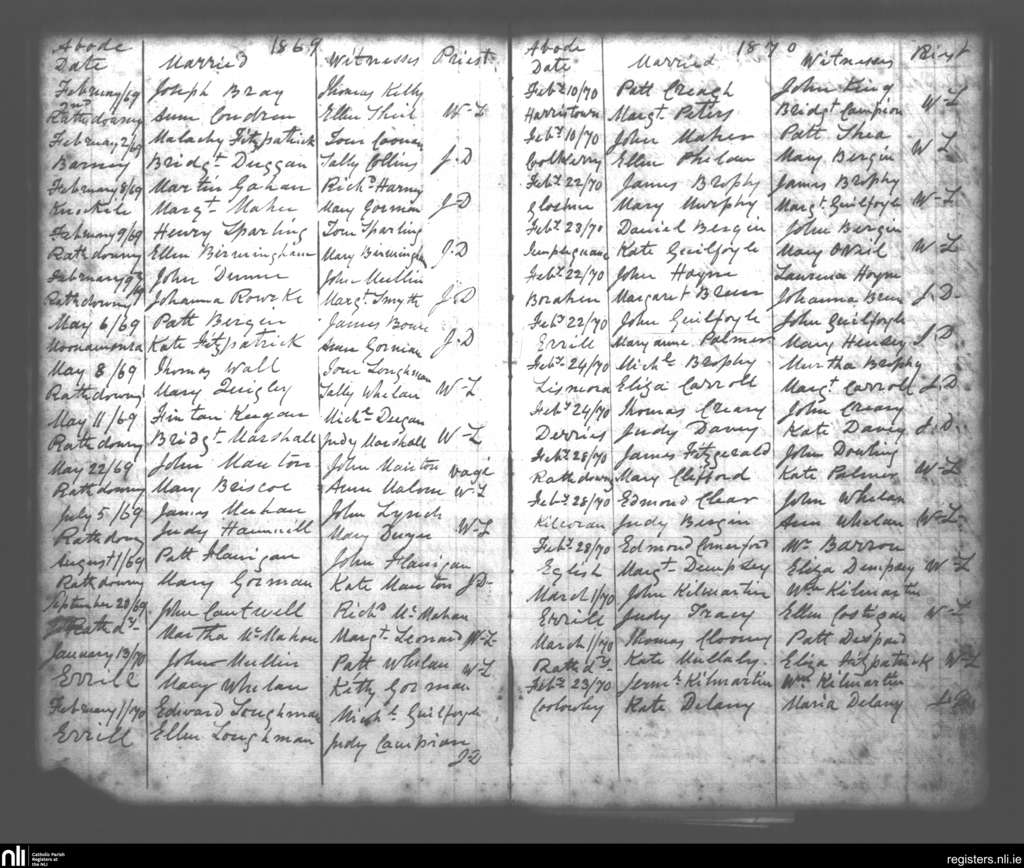 Abode 1869
Date Married Witnesses Priest
February/69 Joseph Bray Thomas Kelly
2nd
Rathdowney Anne Condren Ellen Shiel W-L
February 2/69 Malachy Fitzpatrick Tom
Barney Bridgt. Duggan Sally Collins J.D
February 8/69 Martin Gahan Richd Harny
Knockile Margt. Maher Mary Gorman J.D
February 9/69 Henry Sparling Tom Sparling
Rathdowny Ellen Birmingham Mary Birmingham J.D
February 9th/69 John Dunne John Mullin
Rathdowny Johanna Rowke Margt. Smyth J.D
May 6/69 Patt Bergin James
Kate Fitzpatrick Anne Gorman J.D
May 8/69 Thomas Wall Tom Loughman
Rathdowny Mary Quigley Sally Whelan W-L
May 11/69 Fintan Keegan Michl. Deegan
Rathdowny Bridgt. Marshall Judy Marshall W-L
May 22/69 John Manton John Manton vagi
Rathdowny Mary Briscoe Anne Malone W-L
July 5/69 James Meehan John Lynch
Rathdony Judy Mary W-L
August 1/69 Patt Flanigan John Flanigan
Rathdowny Mary Gorman Kate Manton J.D-
September 28/69 John Cantwell Richd McMahon
Rathdy. Martha McMahon Margt. Leonard W-L-
January 13/70 John Mullin Patt Whelan
Errill Mary Whelan Kitty Gorman W-L
February 1/70 Edward Loughman Michl. Guilfoyle
Errill Ellen Loughman Judy Campian
J D
Abode 1870
Date Married Witnesses Priest
Feby. 10/70 Patt Creagh John King
Harristown Margt. Peters Bridgt Campion W-L
Feby. 10/70 John Maher Patt Shea
Coolkerry Ellen Phelan Mary Bergin W L
Feby. 22/70 James Brophy James Brophy
Mary Murphy Margt. Guilfoyle W-L
Feby. 23/70 Daniel Bergin John Bergin
Kate Guilfoyle Mary O'Neil W-L
Feby. 22/70 John Hoyne Laurence Hoyne
Borahen Margaret Breen Johanna Breen J.D-
Feby. 22/70 John Guilfoyle John Guilfoyle
Errill Maryanne Palmer Mary Hensey J.D
Feby. 24/70 Michl. Brophy Murtha Brophy
Lismora Eliza Carroll Margt. Carroll J.D
Feby. 24/70 Thomas Creary John Creary
Derries Judy Davey Kate Davey J.D.
Feby. 28/70 James Fitzgerald John Dowling
Rathdowny Mary Clifford Kate Palmer W-L
Feby. 28/70 Edmond Clear John Whelan
Kilcoran Judy Bergin Ann Whelan W-L-
Feby. 28/70 Edmond Comerford Wm Barron
Eglish Margt. Dempsey Eliza Dempsey W-L
March 1/70 John Kilmartin Wm Kilmartin
Errill Judy Tracy Ellen Costigan W-L
March 1/70 Thomas Cloony Patt Despard
Rathdy. Kate Mullaly. Eliza Fitzpatrick W-L
Feby. 23/70 Jermh. Kilmartin Wm Kilmartin
Coolowley Kate Delany Maria Delany
nli Catholic Parish Registers at the NLI
registers.nli.ie